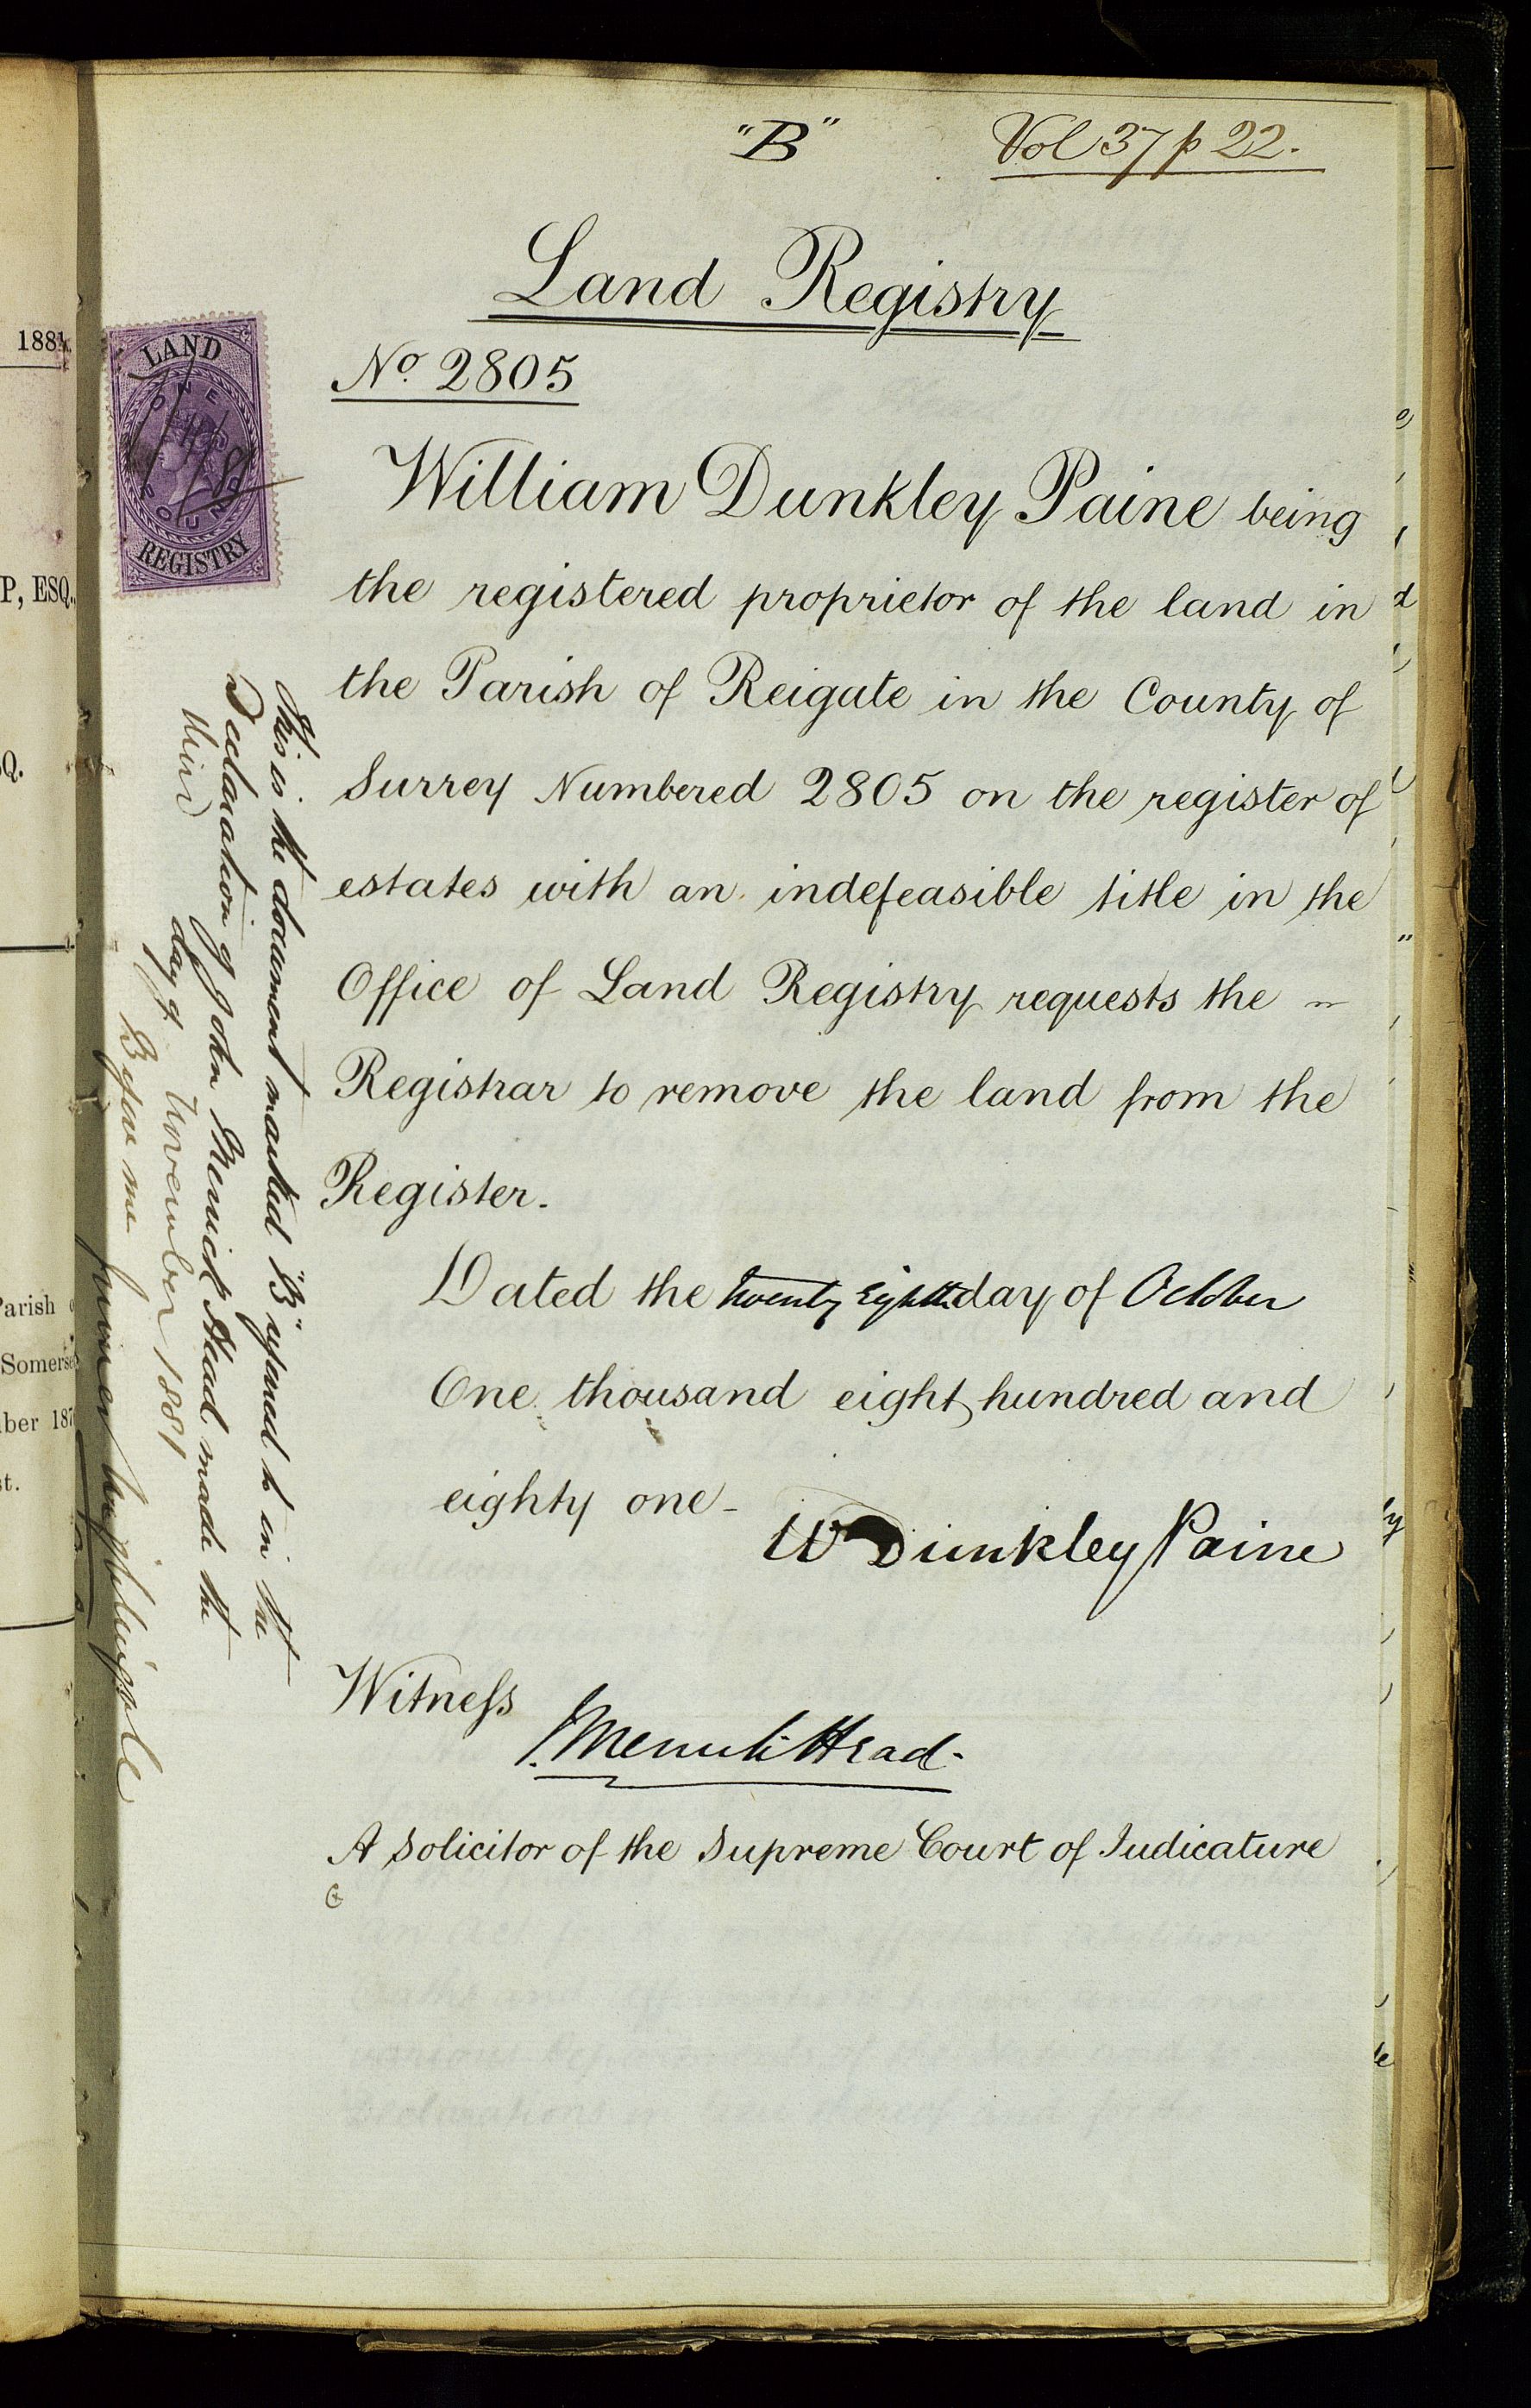 "B"
Vol 37 p 22.
Land Registry
No. 2805
LAND
ONE
POUND
REGISTRY
William Dunkley Paine being
the registered proprietor of the land in
the Parish of Reigate in the County of
Surrey Numbered 2805 on the register of
estates with an indefeasible title in the
Office of Land Registry requests the
Registrar to remove the land from the
Register.
Dated the twenty eighth day of October
One thousand eight hundred and
eighty one
W Dunkley Paine
Witness
J. Merrick Head
A Solicitor of the Supreme Court of Judicature
This is the document marked "B" referred to in the
Declaration of John Merrick Head made the
third day of November 1881
Before me
1881
P, ESQ.
SQ.
Parish
Somerset
ber 187
st.